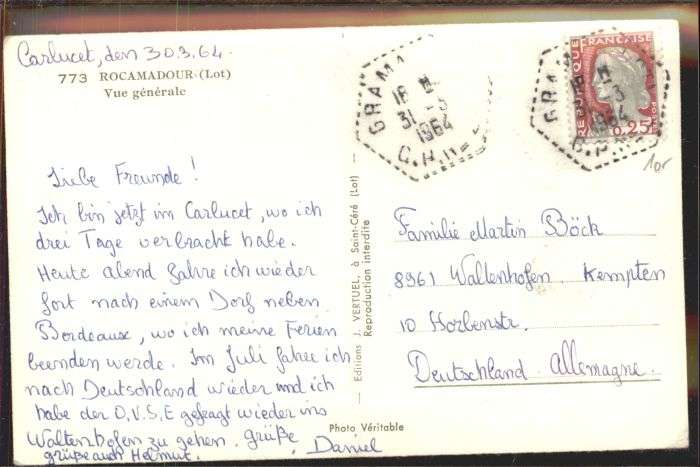 Carlucet, den 30.3.64.
773 ROCAMADOUR (Lot)
Vue générale
Liebe Freunde!
Ich bin jetzt im Carlucet, wo ich
drei Tage verbracht habe.
Heute abend fahre ich wieder
fort nach einem Dorf neben
Bordeaux, wo ich meine Ferien
beenden werde. Im Juli fahre ich
nach Deutschland wieder und ich
habe der D.V.S.E gefragt wieder ins
Waltenhofen zu gehen. grüße
grüße auch Helmut. Daniel
Editions J. VERTUEL, à Saint-Céré (Lot)
Reproduction interdite
Photo Véritable
GRAMA
18 H
31-3
1964
REPUBLIQUE FRANÇAISE
POSTES
0,25
18 H
-3
1964
10r
Familie Martin Böck
8961 Waltenhofen. Kempten
10 Horbenstr.
Deutschland. Allemagne.